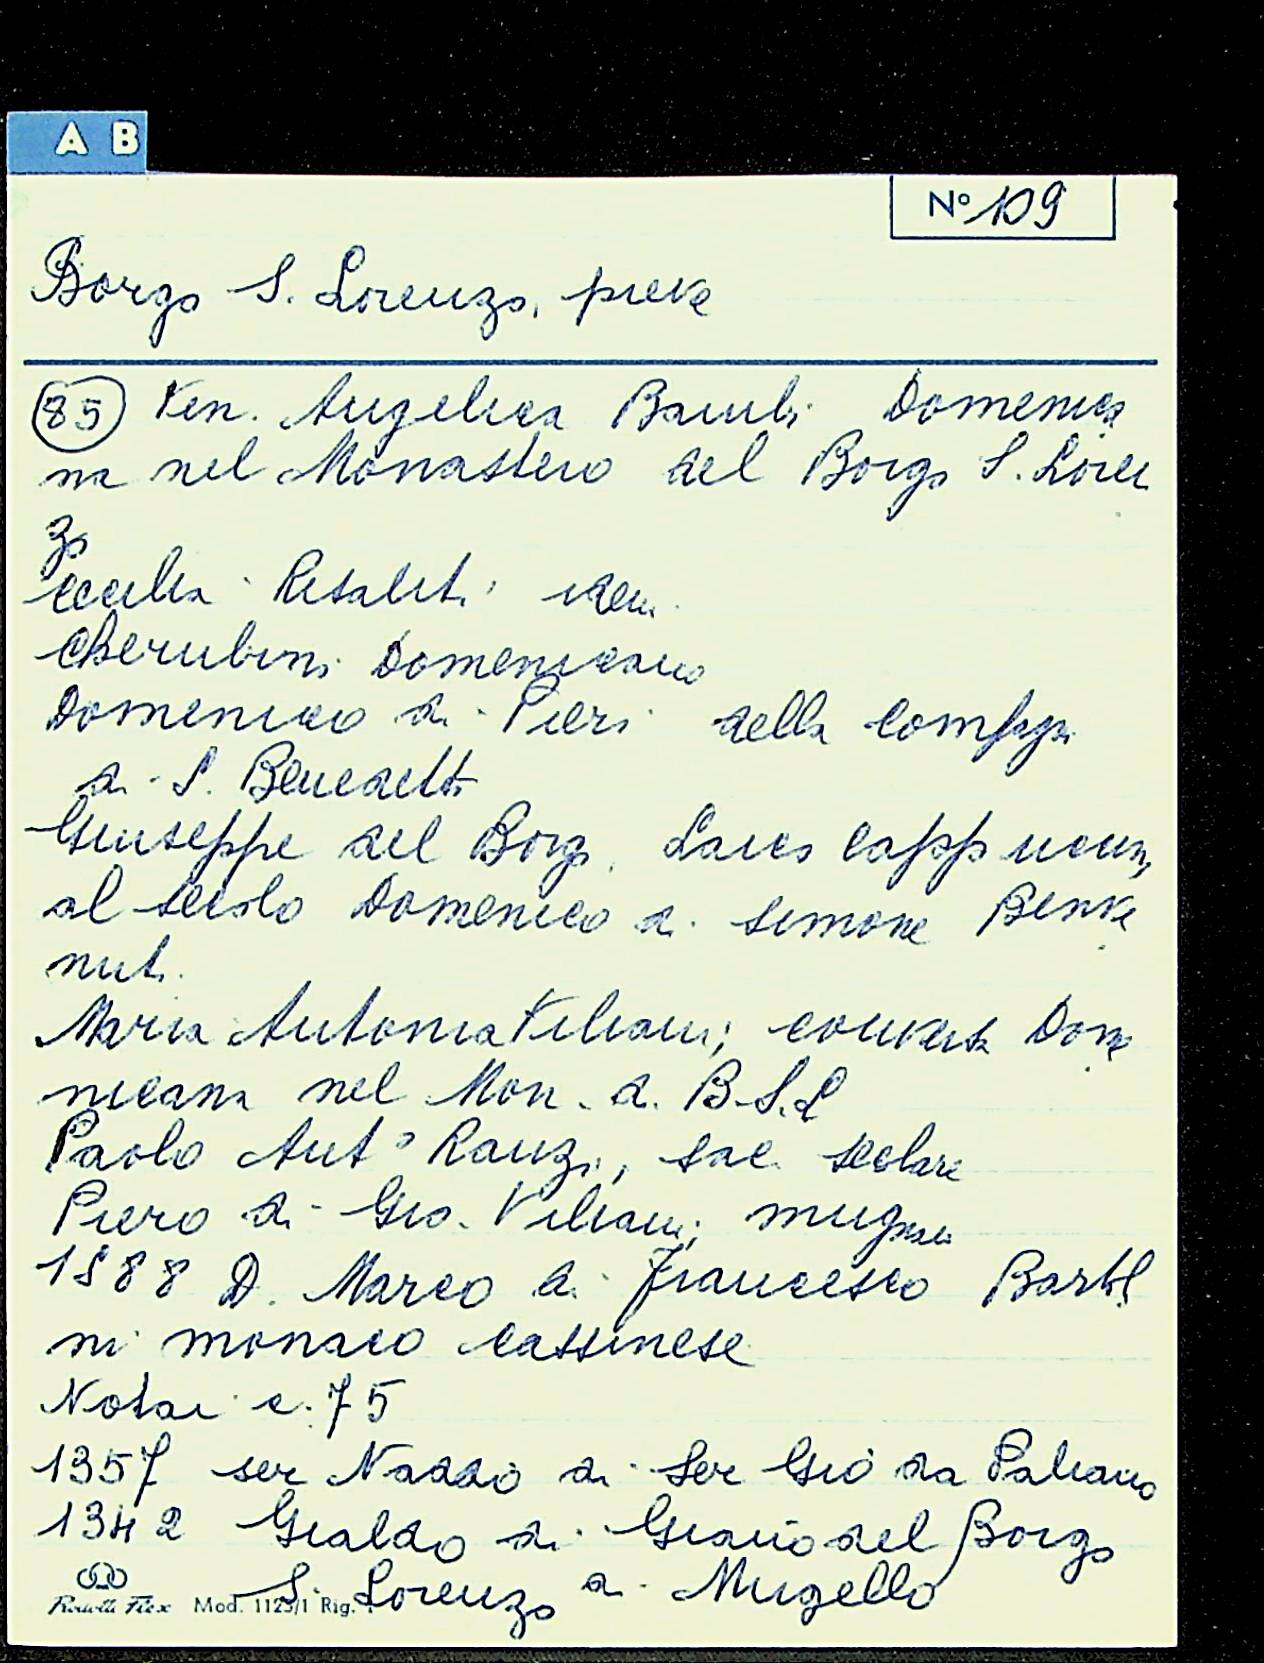 A B
N° 109
Borgo S. Lorenzo, pieve
85 Ven. Angelica Bambi Domenica
na nel Monastero del Borgo S. Loren
zo
Cecilia Risaliti idem
Cherubini Domenicano
Domenico di Piero della Comp
di S. Benedetto
Giuseppe del Borgo. Laico Cappuccino,
al secolo Domenico di Simone Benve
nuti
Maria Antonia Viliani, conversa Dome
nicana nel Mon. di B.S.L
Paolo Ant° Ranzi, sac. secolare
Piero di Gio. Viliani, mugnaio
1588 D. Marco di Francesco Bartol
ni monaco cassinese
Notai c. 75
1357 ser Naddo di Ser Gio da Paliano
1342 Gialdo di Giano del Borgo
S. Lorenzo di Mugello
Mod. 1125/1 Rig.